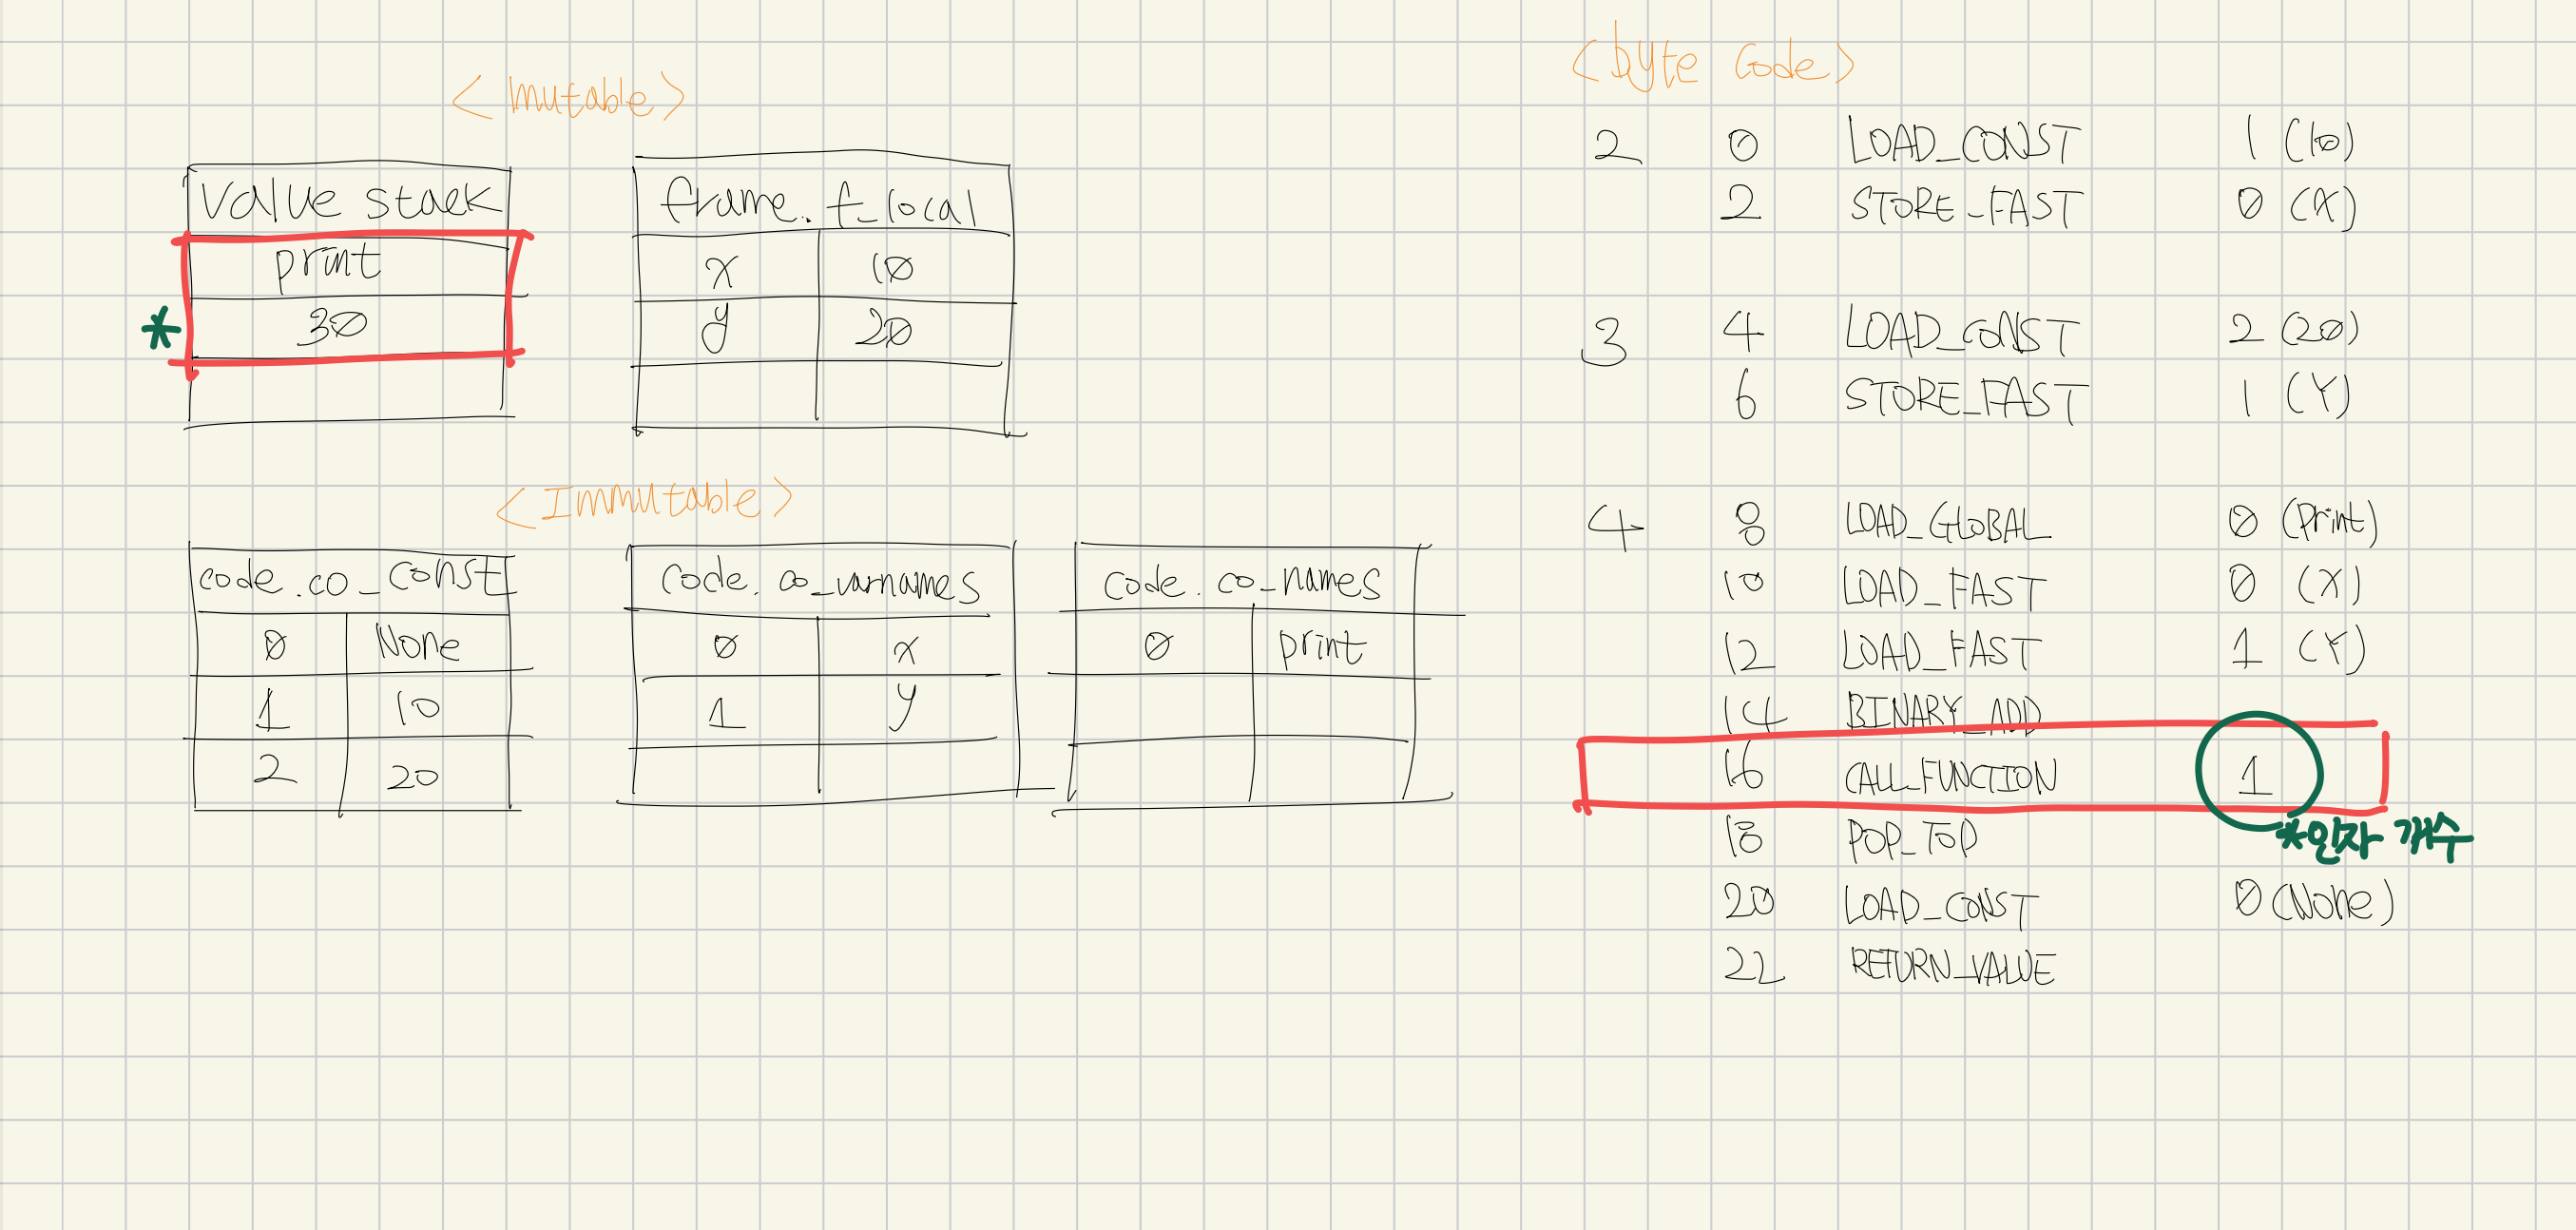 <Mutable>
value stack
print
* 30
frame.f_local
x 10
y 20
<Immutable>
code.co_const
0 None
1 10
2 20
code.co_varnames
0 x
1 y
code.co_names
0 print
<byte Code>
2 0 LOAD_CONST 1 (10)
2 STORE_FAST 0 (X)
3 4 LOAD_CONST 2 (20)
6 STORE_FAST 1 (Y)
4 8 LOAD_GLOBAL 0 (Print)
10 LOAD_FAST 0 (X)
12 LOAD_FAST 1 (Y)
14 BINARY_ADD
16 CALL_FUNCTION 1
*인자 개수
18 POP_TOP
20 LOAD_CONST 0 (None)
22 RETURN_VALUE